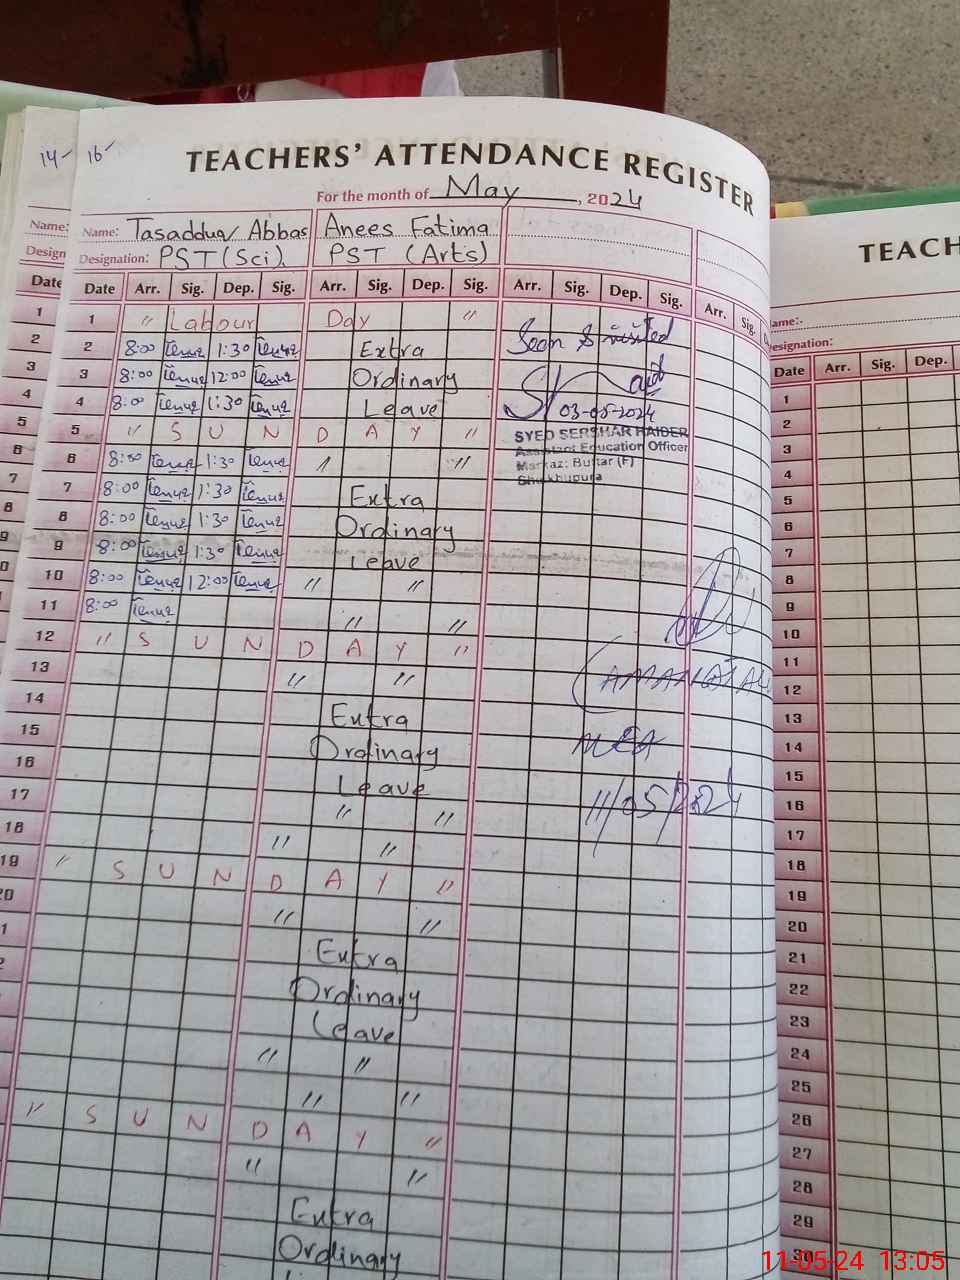 14- 16-
TEACHERS' ATTENDANCE REGISTER
For the month of May, 2024
Name: Tasadduq Abbas Anees Fatima
Designation: PST (Sci). PST (Arts)
Date Arr. Sig. Dep. Sig. Arr. Sig. Dep. Sig. Arr. Sig. Dep. Sig. Arr. Sig.
1 " Labour Day "
2 8:00 1:30 Extra
3 8:00 12:00 Ordinary
4 8:00 1:30 Leave
5 " S U N D A Y "
6 8:00 1:30 "
7 8:00 1:30 Extra
8 8:00 1:30 Ordinary
9 8:00 1:30 Leave
10 8:00 12:00 " "
11 8:00 " "
12 " S U N D A Y "
13 " "
14 Extra
15 Ordinary
16 Leave
17 " "
18 " "
19 " S U N D A Y "
20 " "
Extra
Ordinary
Leave
" "
" "
" S U N D A Y "
" "
Extra
Ordinary
Seen & visited
03-05-2024
SYED SERSHAR HAIDER
Assistant Education Officer
Markaz: Buttar (F)
Sheikhupura
MEA
11/05/2024
Name:
Design
Date
1
2
3
4
5
6
7
8
9
TEACH
Name:-
Designation:
Date Arr. Sig. Dep.
1
2
3
4
5
6
7
8
9
10
11
12
13
14
15
16
17
18
19
20
21
22
23
24
25
26
27
28
29
30
11-05-24 13:05